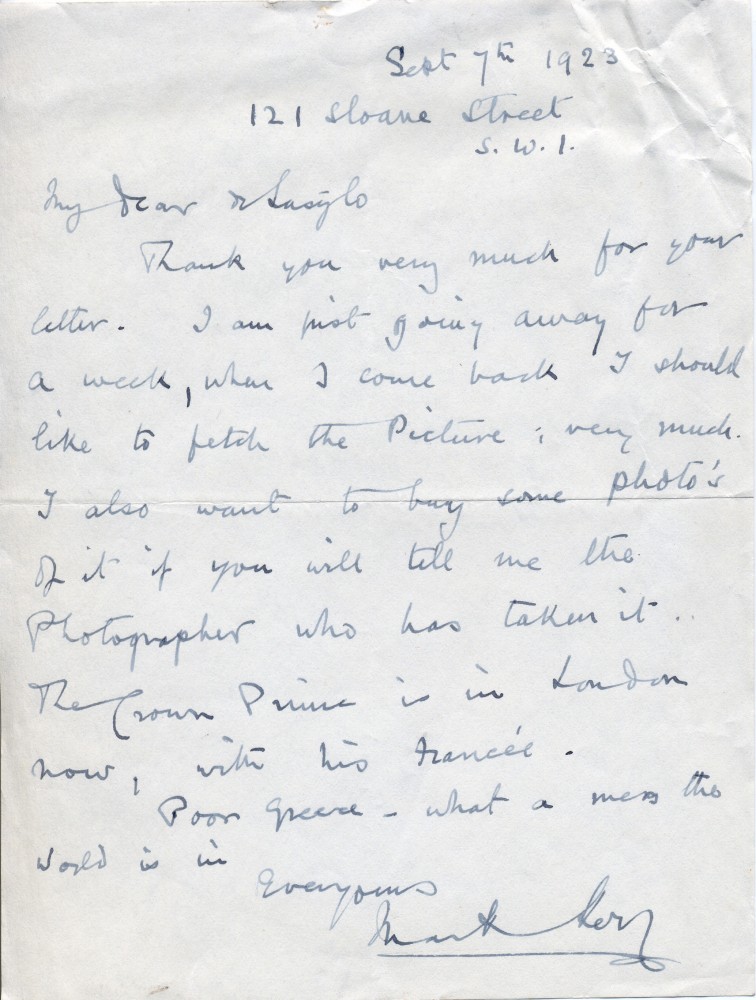 Sept 7th 1923
121 Sloane Street
S. W. 1.
My dear de Laszlo
Thank you very much for your
letter. I am just going away for
a week, when I come back I should
like to fetch the Picture ; very much.
I also want to buy some photo's
of it if you will tell me the
Photographer who has taken it ..
The Crown Prince is in London
now, with his francée.
Poor Greece - what a mess the
World is in
Ever yours
Mark Kerr